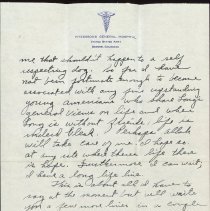 FITZSIMONS GENERAL HOSPITAL
UNITED STATES ARMY
DENVER, COLORADO
me that shouldn't happen to a self
respecting dog. So far I have
not been fortunate enough to become
associated with any fine upstanding
young americans who share
general views on life and whose
is without inside life is
. Perhaps allah
will take care of me. I hope so
at any rate where there's life there
is hope. Furthermore I can wait,
I have a long life line
This is about all I have to
say at the moment but will write
you a few more lines in a couple